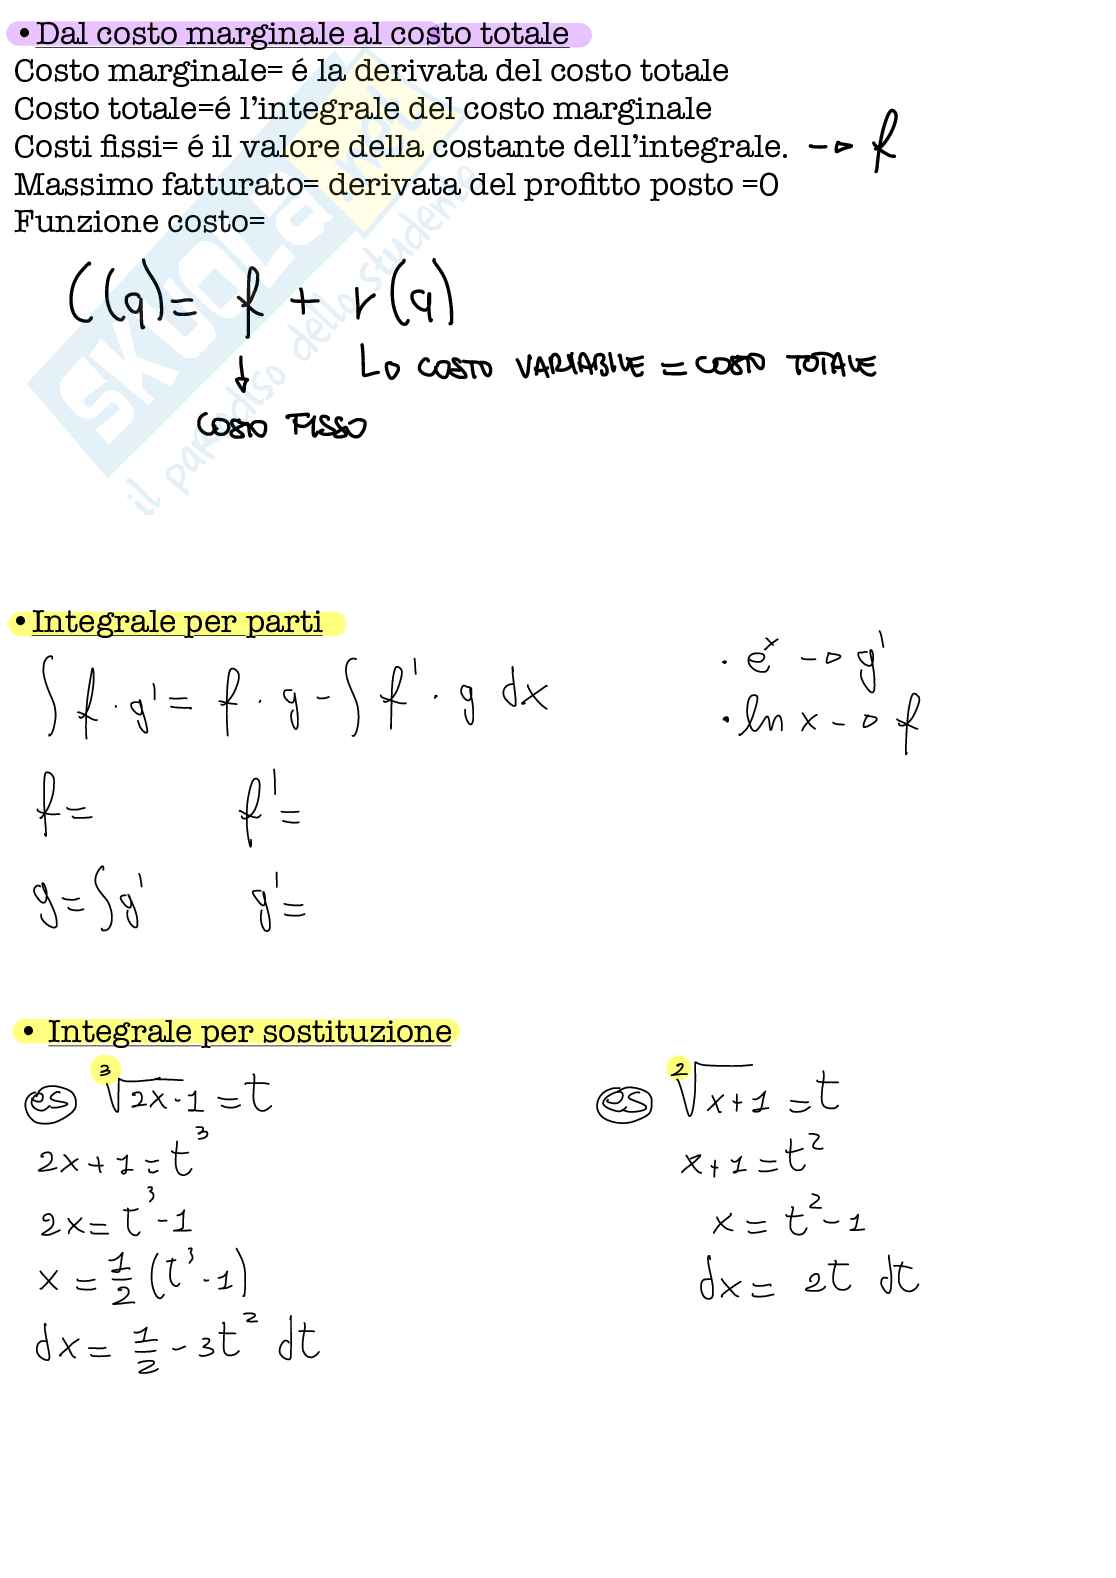 • Dal costo marginale al costo totale
Costo marginale= é la derivata del costo totale
Costo totale=é l'integrale del costo marginale
Costi fissi= é il valore della costante dell'integrale. → f
Massimo fatturato= derivata del profitto posto =0
Funzione costo=
C(q)= f + r(q)
↳ COSTO VARIABILE = COSTO TOTALE
↓
COSTO FISSO
SKUOLA.net
il paradiso dello studente
• Integrale per parti
∫ f · g' = f · g - ∫ f' · g dx
· eˣ → g'
· ln x → f
f= f'=
g= ∫g' g'=
• Integrale per sostituzione
es ³√2x-1 = t
2x+1=t³
2x= t³-1
x = 1/2 (t³-1)
dx= 1/2 - 3t² dt
es ²√x+1 = t
x+1=t²
x = t²-1
dx= 2t dt